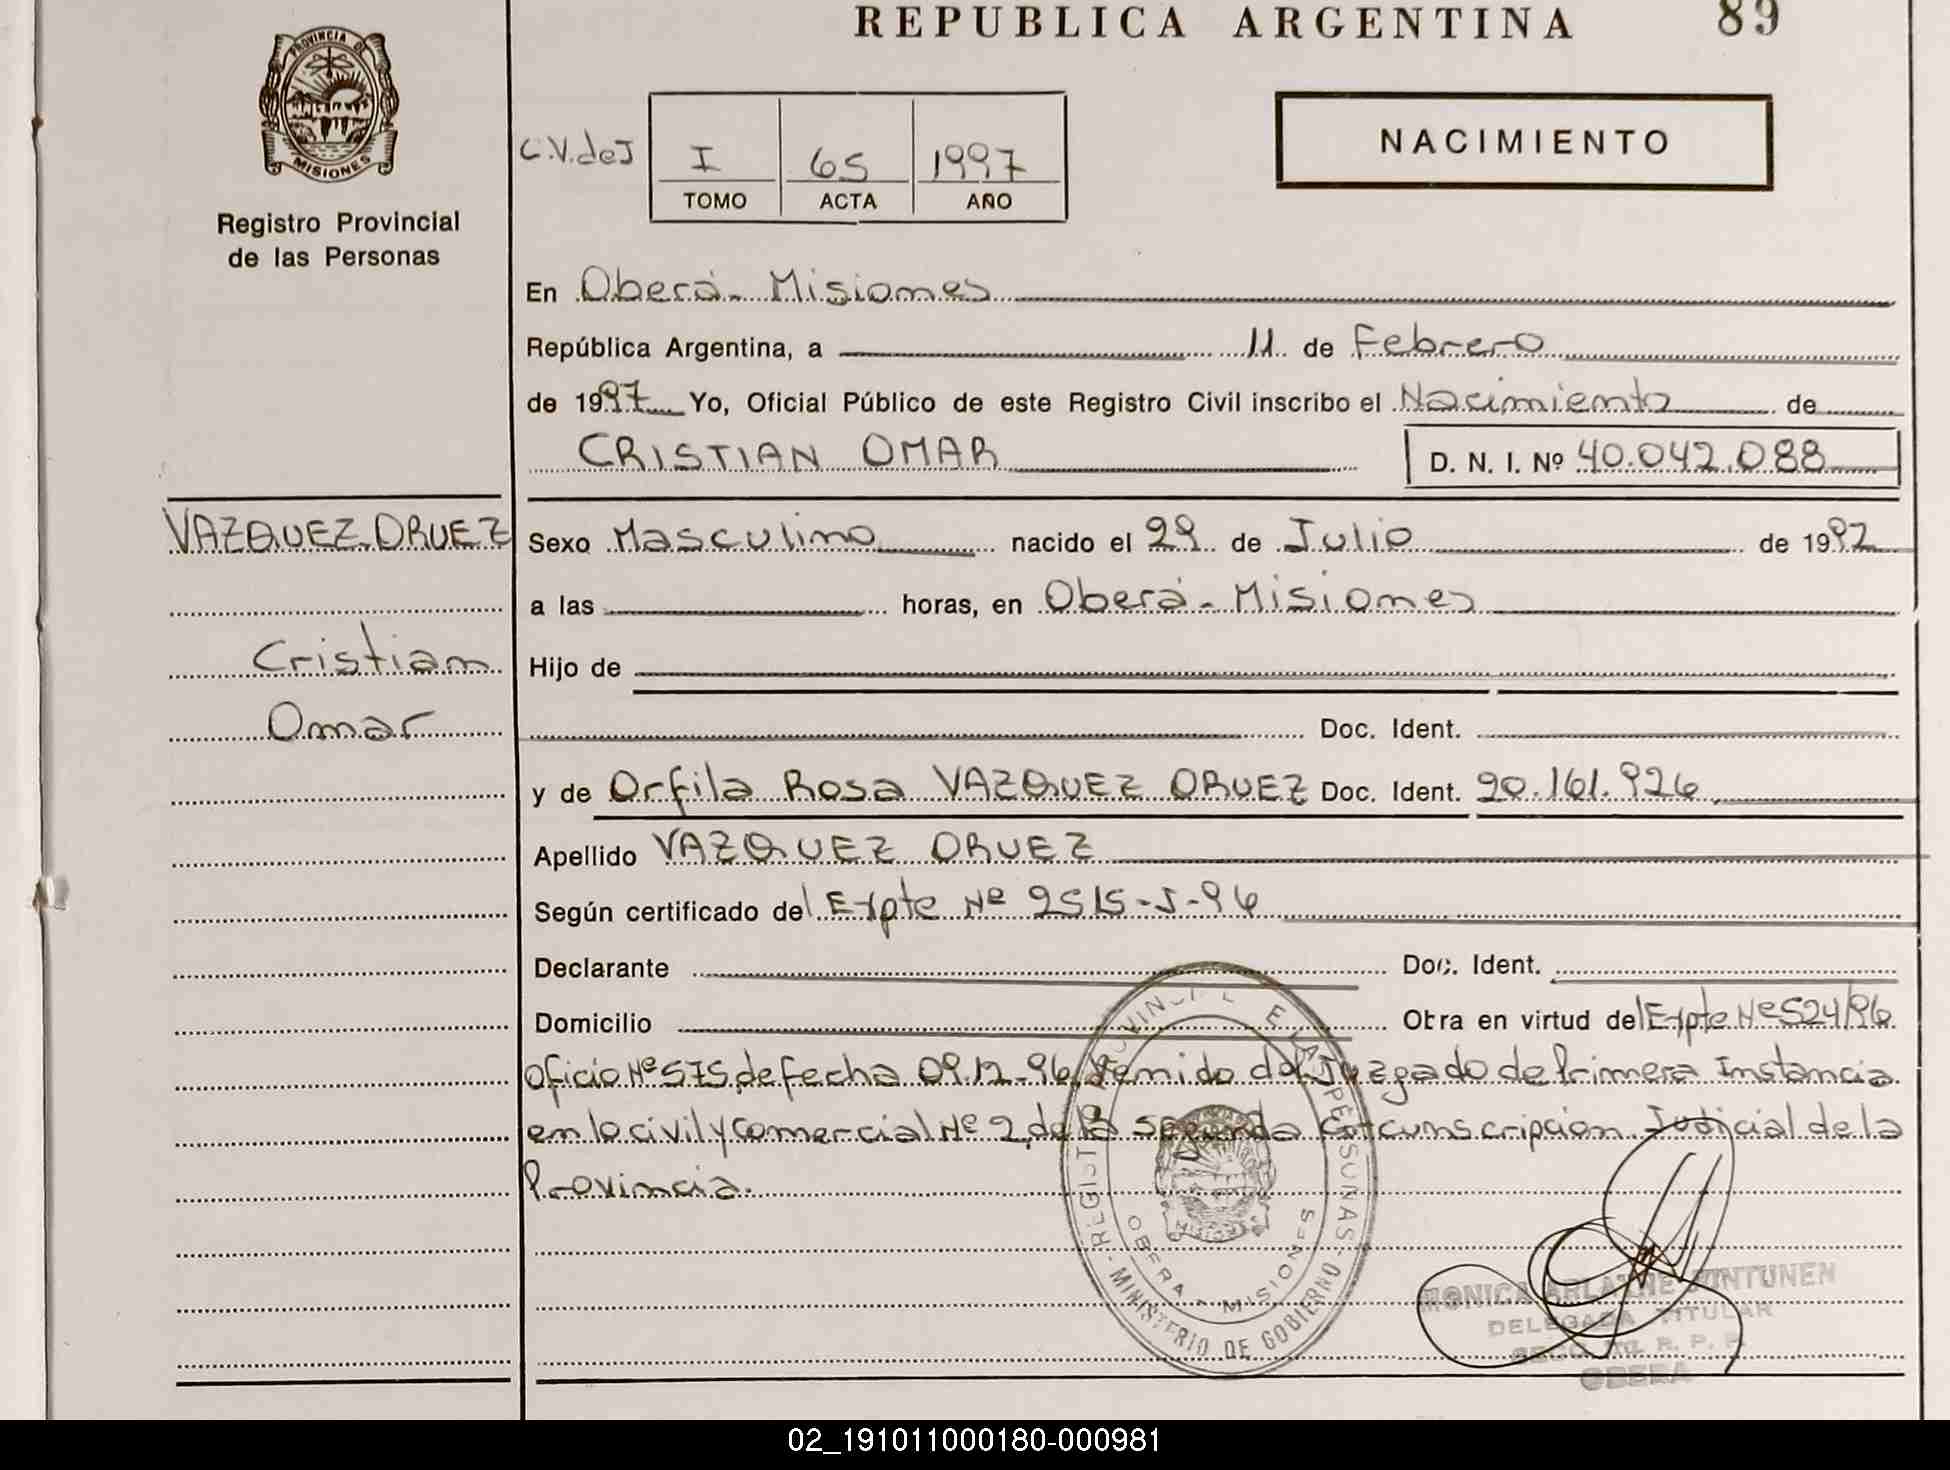 REPUBLICA ARGENTINA 89
PROVINCIA DE
MISIONES
Registro Provincial
de las Personas
C.V.deJ
I 65 1997
TOMO ACTA AÑO
NACIMIENTO
En Oberá - Misiones
República Argentina, a 11 de Febrero
de 1997 Yo, Oficial Público de este Registro Civil inscribo el Nacimiento de
CRISTIAN OMAR D. N. I. Nº 40.042.088
VAZQUEZ DRUEZ
Cristian
Omar
Sexo Masculino nacido el 29 de Julio de 1992
a las horas, en Oberá - Misiones
Hijo de
Doc. Ident.
y de Orfila Rosa VAZQUEZ DRUEZ Doc. Ident. 20.161.926
Apellido VAZQUEZ DRUEZ
Según certificado del Expte Nº 2515-J-96
Declarante Doc. Ident.
Domicilio Otra en virtud del Expte Nº 524/96
oficio Nº 575 de fecha 09.12.96, venido del Juzgado de Primera Instancia
en lo civil y comercial Nº 2, de la segunda Circunscripción Judicial de la
Provincia.
MINISTERIO DE GOBIERNO
OBERA - MISIONES
MONICA ARLAINE
DELEGADA TITULAR
R. P. P.
OBERA
02_191011000180-000981